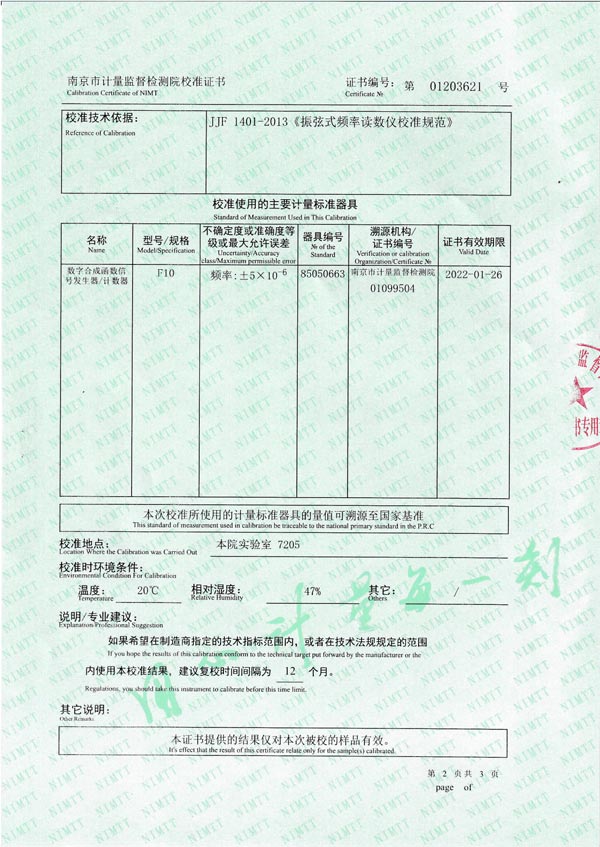 南京市计量监督检测院校准证书
Calibration Certificate of NIMT
证书编号: 第 01203621 号
Certificate №
校准技术依据:
Reference of Calibration
JJF 1401-2013《振弦式频率读数仪校准规范》
校准使用的主要计量标准器具
Standard of Measurement Used in This Calibration
名称
Name
型号/规格
Model/Specification
不确定度或准确度等
级或最大允许误差
Uncertainty/Accuracy
class/Maximum permissible error
器具编号
№ of the
Standard
溯源机构/
证书编号
Verification or calibration
Organization/Certificate №
证书有效期限
Valid Date
数字合成函数信
号发生器/计数器
F10
频率:±5×10⁻⁶
85050663
南京市计量监督检测院
01099504
2022-01-26
监督
书专用
本次校准所使用的计量标准器具的量值可溯源至国家基准
This standard of measurement used in calibration be traceable to the national primary standard in the P.R.C
校准地点:
Location Where the Calibration was Carried Out
本院实验室 7205
校准时环境条件:
Environmental Condition For Calibration
温度: 20℃
Temperature
相对湿度: 47%
Relative Humidity
其它: /
Others
用心计量每一刻
说明/专业建议:
Explanation/Professional Suggestion
如果希望在制造商指定的技术指标范围内，或者在技术法规规定的范围
If you hope the results of this calibration conform to the technical target put forward by the manufacturer or the
内使用本校准结果，建议复校时间间隔为 12 个月。
Regulations, you should take this instrument to calibrate before this time limit.
其它说明:
Other Remarks
本证书提供的结果仅对本次被校的样品有效。
It's effect that the result of this certificate relate only for the sample(s) calibrated.
第 2 页共 3 页
page of